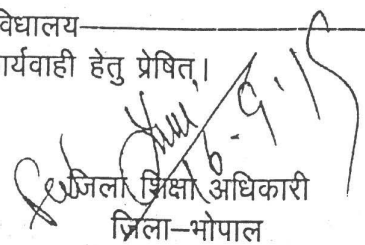 विधालय
र्यवाही हेतु प्रेषित्।
जिला शिक्षा अधिकारी
ज़िला–भोपाल